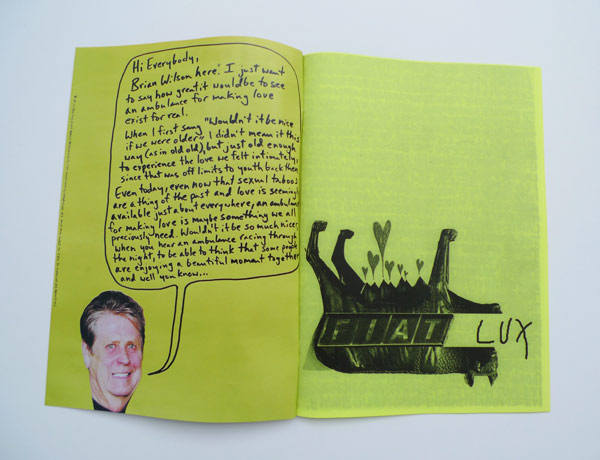 Hi Everybody,
Brian Wilson here. I just want
to say how great it would be to see
an ambulance for making love
exist for real.
When I first sang "Wouldn't it be nice
if we were older" I didn't mean it this
way (as in old old), but just old enough
to experience the love we felt intimately,
since that was off limits to youth back then.
Even today, even now that sexual taboos
are a thing of the past and love is seemingly
available just about everywhere, an ambulance
for making love is maybe something we all
preciously need. Wouldn't it be so much nicer
when you hear an ambulance racing through
the night, to be able to think that some people
are enjoying a beautiful moment together
and well you know...
FIAT LUX